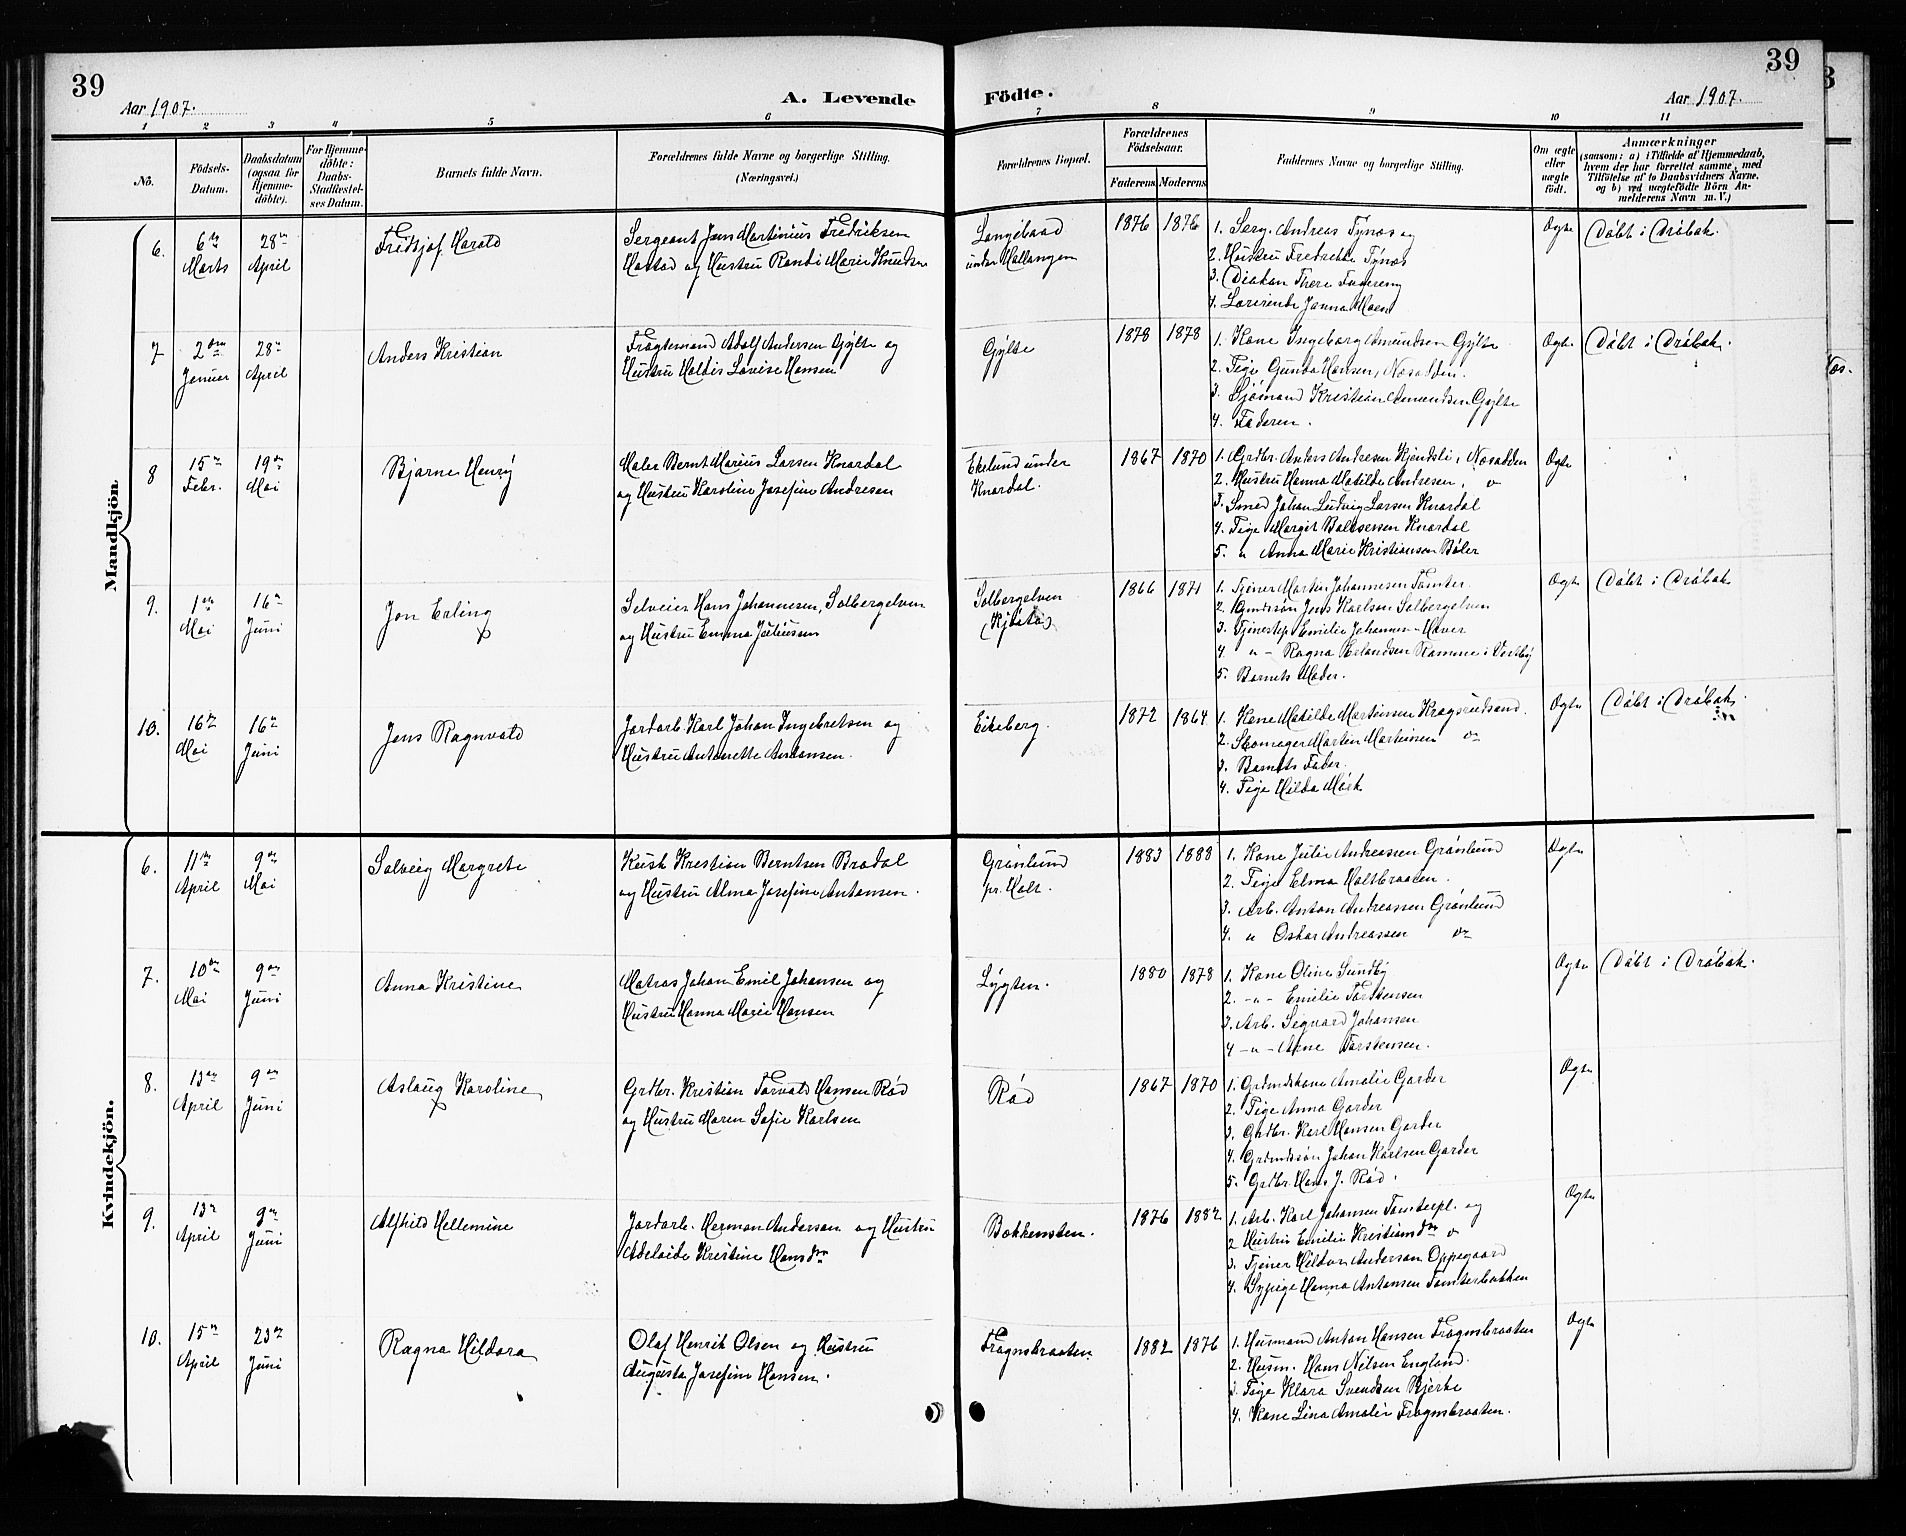 39
39
Aar 1907.
A. Levende
Födte.
Aar 1907.
1 2 3 4 5 6 7 8 9 10 11
No.
Födsels-Datum.
Daabsdatum (ogsaa for Hjemme-döbte).
For Hjemme-döbte: Daabs-Stadfæstel-ses Datum.
Barnets fulde Navn.
Forældrenes fulde Navne og borgerlige Stilling.
(Næringsvei.)
Forældrenes Bopæl.
Forældrenes Födselsaar.
Faderens Moderens
Faddernes Navne og borgerlige Stilling.
Om ægte eller uægte födt.
Anmærkninger
(saasom: a) i Tilfælde af Hjemmedaab,
hvem der har forrettet samme, med
Tilföielse af to Daabsvidners Navne,
og b) ved uægtefödte Börn An-
melderens Navn m. V.)
Mandkjön
6. 6te Marts 28de April
Fredsjof Harald
Sergeant Jens Martinius Fredriksen
Hastad og Hustru Randi Marie Knudsen
Langebaad
under Hallangen
1876 1876
1. Serg. Andreas Tynæs og
2. Hustru Fredrikke Tynæs
3. Diakon There
4. Lærerinde Janna Moen
Ægte
Döbt i Dröbak.
7 2den Januar 28de April
Anders Kristian
Fragtemand Adolf Andersen Gylte og
Hustru Haldis Lovise Hansen
Gylte
1878 1878
1. Kone Ingeborg Amundsen Gylte
2. Pige Gunda Hansen, Næsodden.
3. Sjömand Kristian Amundsen Gylte
4. Faderen.
Ægte
Döbt i Dröbak.
8 15de Febr. 19de Mai
Bjarne Henry
Maler Bernt Marius Larsen Knardal
og Hustru Karoline Josefine Andresen
Ekelund under
Knardal.
1867 1870
1. Grdbr. Anders Andresen Kjendsli, Næsodden
2. Hustru Hanna Matilde Andresen, "
3. Smed Johan Ludvig Larsen Knardal
4. Pige Margit Baltsersen Knardal
5. " Anna Marie Kristiansen Böler
Ægte
9. 1ste Mai 16de Juni
Jon Erling
Selveier Hans Johannesen, Solbergelven
og Hustru Emma Juliussen
Solbergelven
1866 1871
1. Tjener Martin Johannesen Tomter
2. Gmdssön Jens Karlsen Solbergelven
3. Tjenestep. Emilie Johannes- Haver
4. " - Ragna Erlandsen Ramme i Vestby
5. Barnets Moder.
Ægte
Döbt i Dröbak
10. 16de Mai 16de Juni
Jens Ragnvald
Jordarb. Karl Johan Ingebretsen og
Hustru Antonette Antonsen.
Eikeberg.
1872 1864
1. Kone Matilde Martinsen Kragsrudsand
2. Skomager Martin Martinsen do
3. Barnets Fader.
4. Pige Hilda Mörk
Ægte
Döbt i Dröbak.
Kvindekjön.
6. 11te April 9de Mai
Solveig Margrete
Kusk Kristian Berntsen Brødal
og Hustru Alma Josefine Antonsen.
Grönlund
pr. Holt.
1883 1888
1. Kone Julie Andreassen Grönlund
2. Pige Elma Holtbraaten.
3. Arb. Anton Andreassen Grönlund
4. " Oskar Andreassen do
Ægte
7. 10de Mai 9de Juni
Anna Kristine
Matros Johan Emil Johansen og
Hustru Hanna Marie Hansen
Lygten.
1880 1878
1. Kone Oline Sundby
2. - " - Emilie Torstensen
3. Arb. Sigvard Johansen
4 - " - Arne Torstensen.
Ægte
Döbt i Dröbak.
8. 13de April 9de Juni
Aslaug Karoline
Grdbr. Kristian Torvald Hansen Röd
og Hustru Maren Sofie Karlsen
Röd
1867 1870
1. Grdmdskone Amalie Garder
2. Pige Anna Garder
3. Grdbr. Karl Hansen Garder
4. Grdmdssön Johan Karlsen Garder
5. Grdbr. Hans J. Röd.
Ægte
9. 13de April 9de Juni
Alfhild Hellemine
Jordarb. Herman Anderson og Hustru
Adelaide Kristine Hansdtr
Bakkensten.
1876 1882
1. Arb. Karl Johansen Tomterpl. og
2 Hustru Emilie Kristiansdtr "
3. Tjener Hildor Anderson Oppegaard
4. Sypige Hanna Antonsen Tomterbakken
Ægte
10. 15de April 23de Juni
Ragna Hildora
Olaf Henrik Olsen og Hustru
Augusta Josefine Hansen.
Frognsbraaten.
1882 1876
1. Husmand Anton Hansen Frognsbraaten
2. Husm. Hans Nilsen England.
3. Pige Klara Svendsen Bjerke
4. Kone Lina Amalie Frognsbraaten.
Ægte